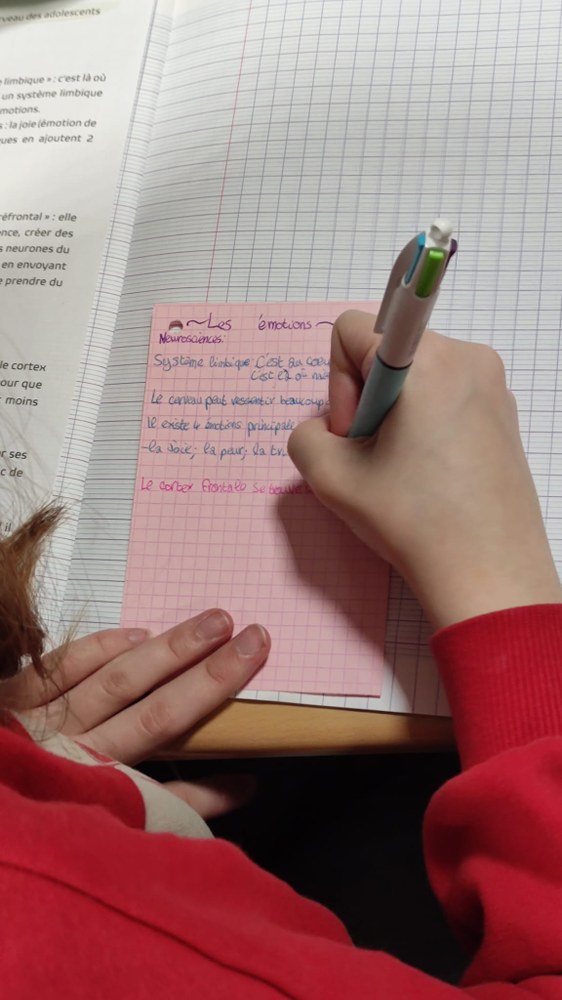 veau des adolescents
limbique » : c'est là où
un système limbique
motions.
s : la joie (émotion de
ues en ajoutent 2
réfrontal » : elle
nce, créer des
s neurones du
en envoyant
e prendre du
le cortex
our que
moins
r ses
c de
il
~Les émotions~
Neurosciences:
Système limbique: C'est au
c'est là où
Le cerveau peut ressentir beaucoup
Il existe 4 émotions principale
-la Joie; la peur; la tr
Le cortex frontale se trouve